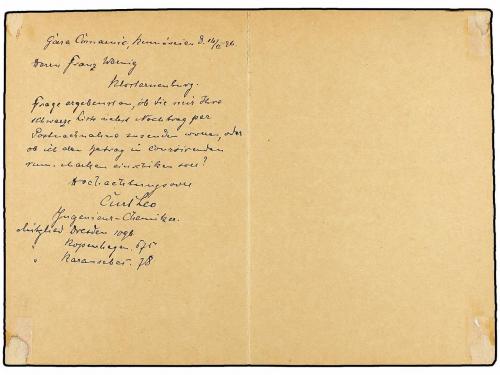 Gara Comarnic, Rumänien d. 16/II 26.
Herrn Franz
Klosterneuburg.
Frage ergebenst an, ob Sie mir Ihre
schwarze Liste nebst Nachtrag per
Postnachnahme zusenden wollen, oder
ob ich den Betrag in coursirenden
rum. Marken einschiken soll?
Hochachtungsvoll
Curt Leo
Ingenieur-Chemiker.
Mitglied Dresden
" Kopenhagen. 675
" Karansebes. 78